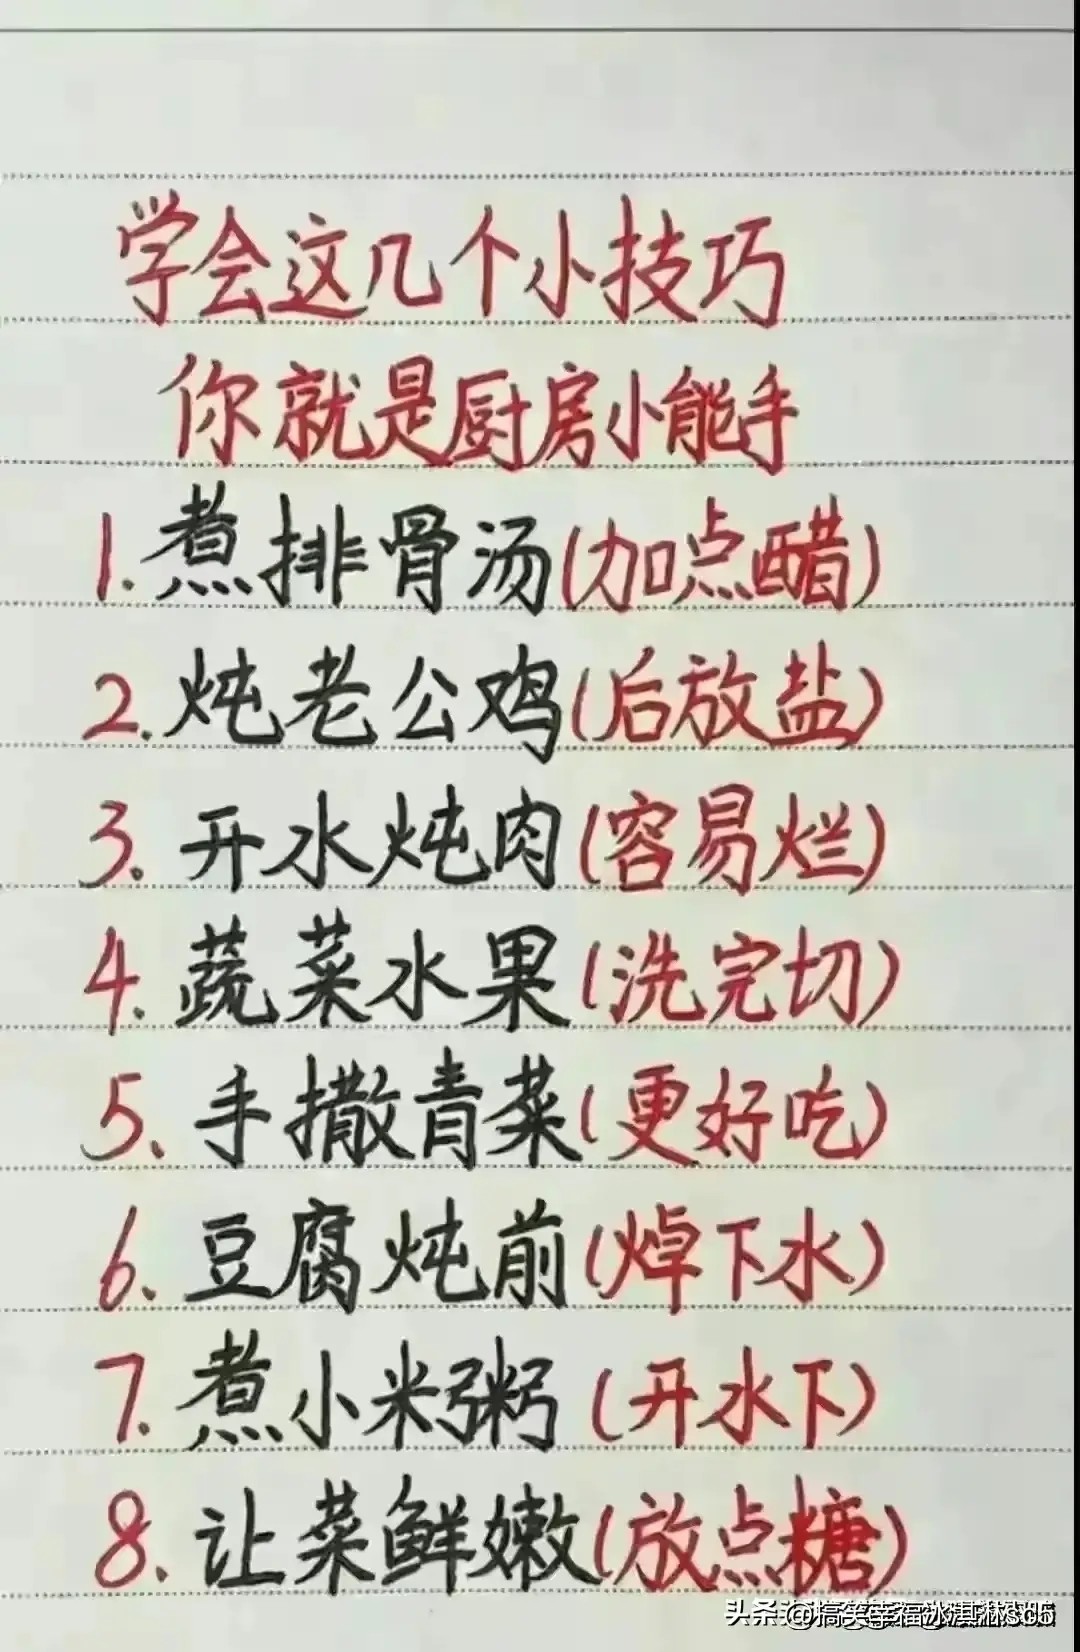 学会这几个小技巧
你就是厨房小能手
1.煮排骨汤(加点醋)
2.炖老公鸡(后放盐)
3.开水炖肉(容易烂)
4.蔬菜水果(洗完切)
5.手撒青菜(更好吃)
6.豆腐炖前(焯下水)
7.煮小米粥(开水下)
8.让菜鲜嫩(放点糖)
头条@搞笑幸福冰淇淋